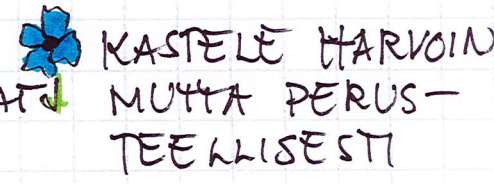 KASTELE HARVOIN
MUTTA PERUS-
TEELLISESTI